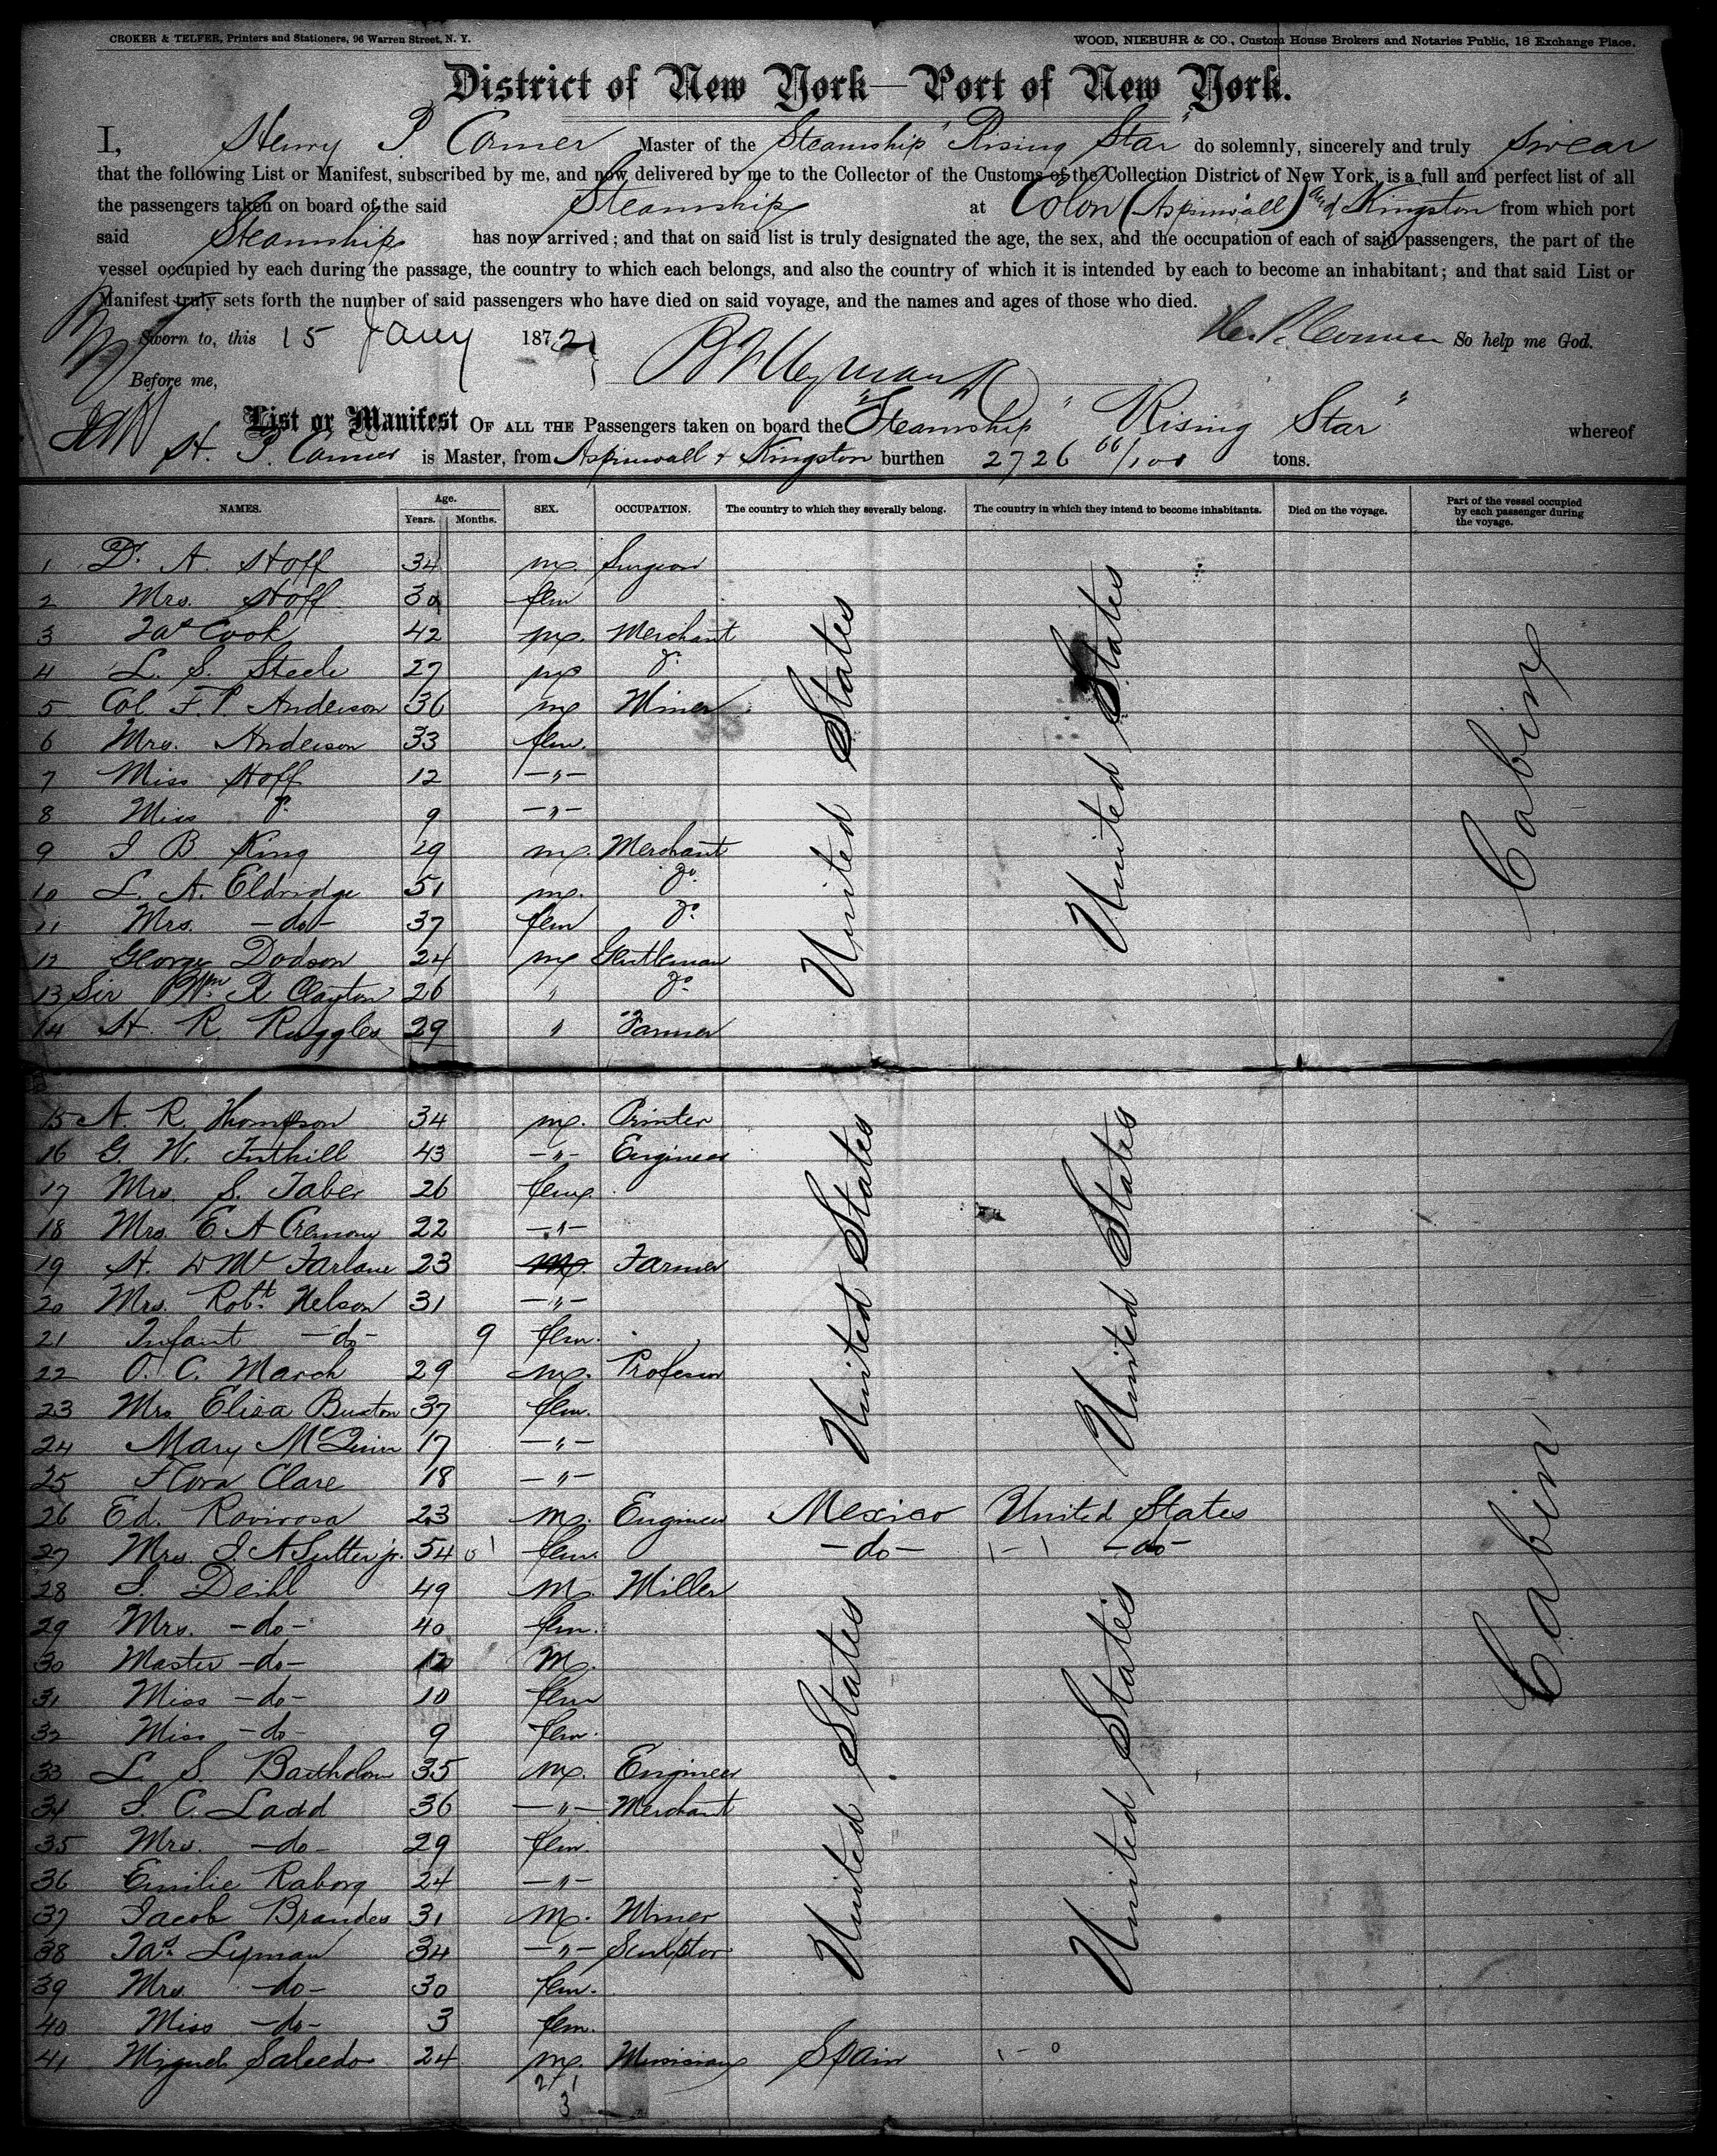 CROKER & TELFER, Printers and Stationers, 96 Warren Street, N. Y.
WOOD, NIEBUHR & CO., Custom House Brokers and Notaries Public, 18 Exchange Place.
District of New York—Port of New York.
I, Henry P Conner Master of the Steamship "Rising Star" do solemnly, sincerely and truly swear
that the following List or Manifest, subscribed by me, and now delivered by me to the Collector of the Customs of the Collection District of New York, is a full and perfect list of all
the passengers taken on board of the said Steamship at Colon (Aspinwall) and Kingston from which port
said Steamship has now arrived; and that on said list is truly designated the age, the sex, and the occupation of each of said passengers, the part of the
vessel occupied by each during the passage, the country to which each belongs, and also the country of which it is intended by each to become an inhabitant; and that said List or
Manifest truly sets forth the number of said passengers who have died on said voyage, and the names and ages of those who died.
Sworn to, this 15 Jany 1872 So help me God.
Before me,
List or Manifest OF ALL THE Passengers taken on board the "Steamship "Rising Star" whereof
H. P. Conner is Master, from Aspinwall + Kingston burthen 2726 66/100 tons.
NAMES. Age. Years. Months. SEX. OCCUPATION. The country to which they severally belong. The country in which they intend to become inhabitants. Died on the voyage. Part of the vessel occupied by each passenger during the voyage.
1 Dr A. Hoff 34 m. Surgeon
2 Mrs. Hoff 30 fem
3 Jas Cook 42 m. Merchant
4 L. S. Steele 27 m do
5 Col. F. P. Anderson 36 m Miner
6 Mrs. Anderson 33 fem.
7 Miss Hoff 12 -"-
8 Miss do 9 -"-
9 J B King 29 m. Merchant
10 L. A. Eldridge 51 m. do
11 Mrs. -do- 37 fem do
12 George Dodson 24 m Gentleman
13 Sir Wm R Clayton 26 " do
14 H. R. Ruggles 29 " Farmer
United States United States Cabin
15 A. R. Thompson 34 m. Printer
16 G. W. Tuthill 43 -"- Engineer
17 Mrs S. Taber 26 fem
18 Mrs. E A Cremony 22 -"-
19 H. D McFarlane 23 m. Farmer
20 Mrs. Robt. Nelson 31 -"-
21 Infant -do- 9 fem.
22 O. C. March 29 m. Professor
23 Mrs Elisa Buxton 37 fem.
24 Mary McQuinn 17 -"-
25 Flora Clare 18 -"-
United States United States
26 Ed. Rovirosa 23 m. Engineer Mexico United States
27 Mrs. J. A Sutter jr. 54 fem. -do- -do-
28 S. Deihl 49 m. Miller
29 Mrs. -do- 40 fem.
30 Master -do- 12 m.
31 Miss -do- 10 fem
32 Miss -do- 9 fem.
33 L. S. Bartholow 35 m. Engineer
34 S. C. Ladd 36 -"- Merchant
35 Mrs. -do- 29 fem.
36 Emilie Raborg 24 -"-
37 Jacob Brandes 31 m. Miner
38 Jas. Lyman 34 -"- Sculptor
39 Mrs -do- 30 fem.
40 Miss -do- 3 fem.
United States United States Cabin
41 Miguel Salcedo 24 m. Musician Spain